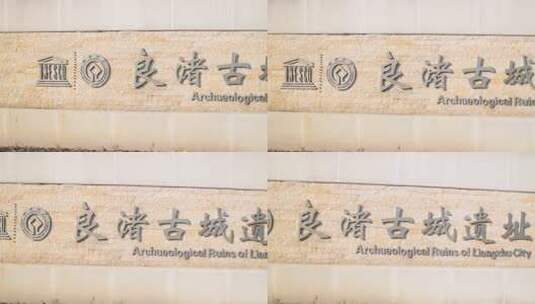 UNESCO 良渚古城
Archaeological Ruin
UNESCO 良渚古城
Archaeological Ruins
良渚古城遺
Archaeological Ruins of Lian
良渚古城遺址
Archaeological Ruins of Liangzhu City